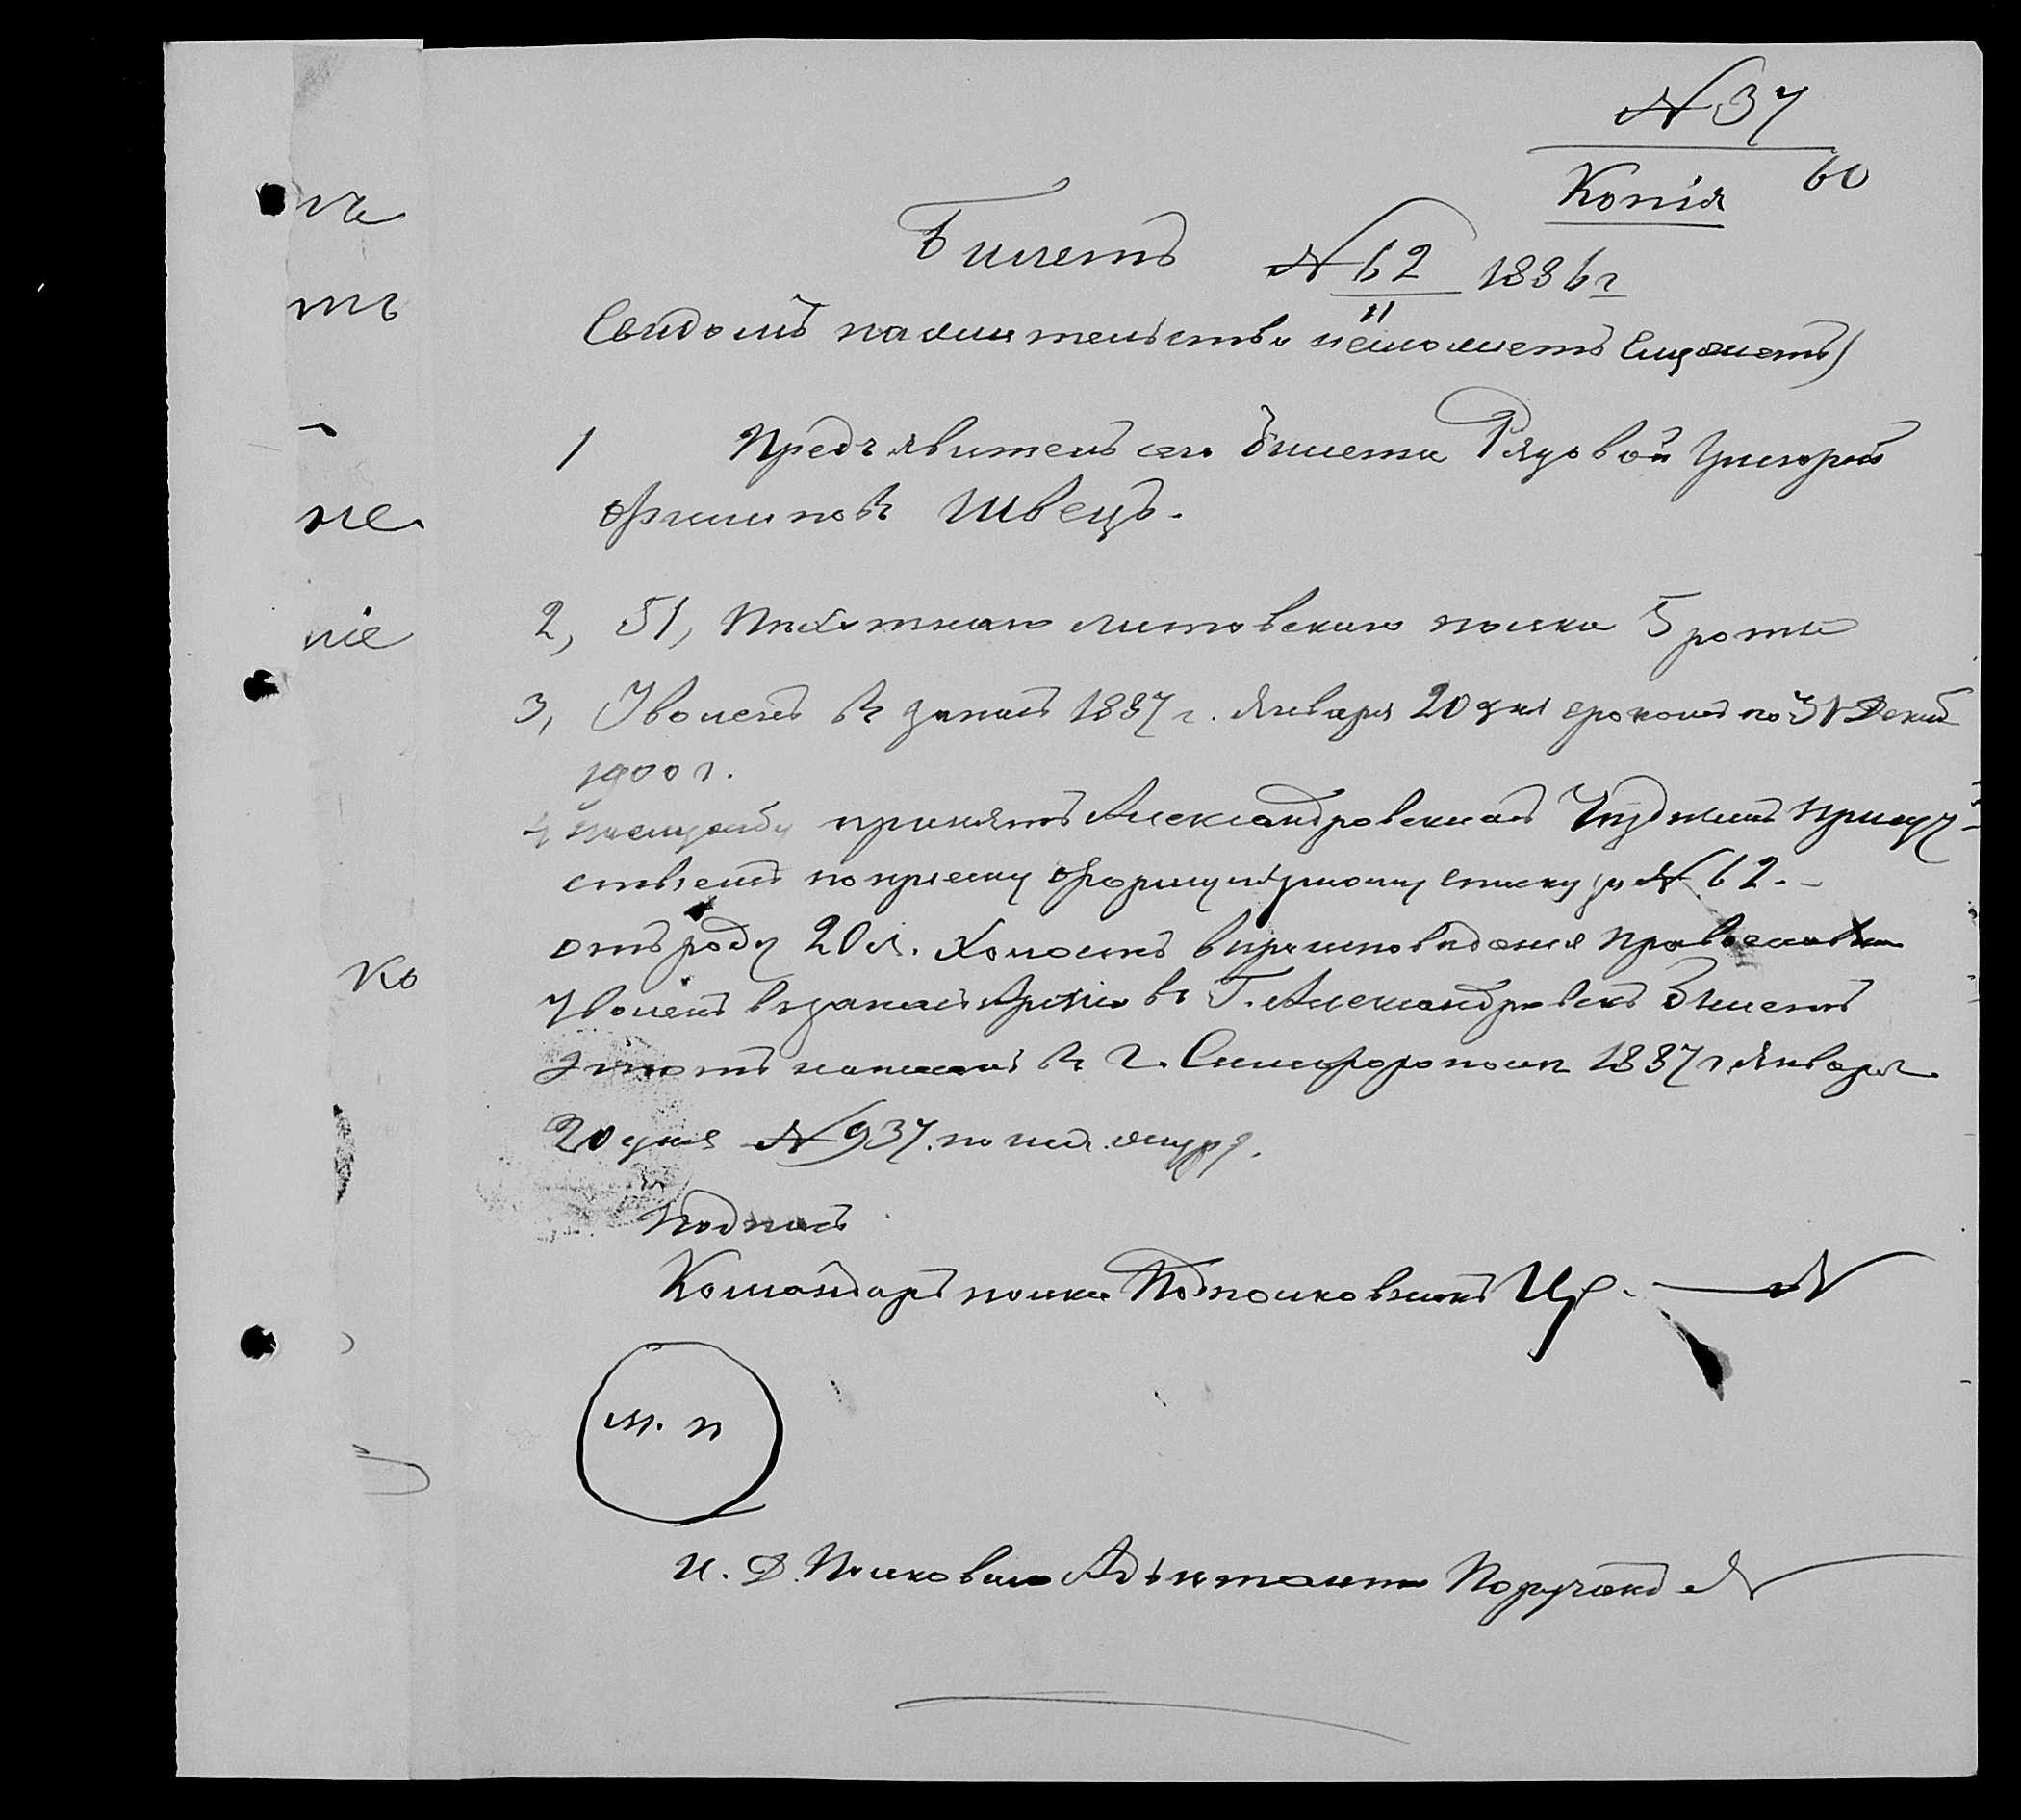 № 37
60
Копія
Билетъ № 62 1886 г
1 Предъявитель сего билета Рядовой Григорій
Филиповъ Швецъ.
2, 51, Пѣхотнаго Литовскаго полка 5 роты
3, Уволенъ въ запасъ 1887 г. Января 20 дня срокомъ по 31 Декаб
1900 г.
принятъ Александровскимъ Уѣзднымъ Присут-
ствіемъ по пріемному формулярному списку за № 62.-
отъ роду 20 л. Холостъ вѣроисповѣданія православнаго
Уволенъ въ запасъ Арміи въ Г. Александровскъ Билетъ
этотъ написанъ въ г. Симферополѣ 1887 г. Января
20 дня № 937.
Подпись
Командиръ полка Подполковникъ
м. п
И. Д. Полковаго Адъютанта Поручикъ
на
не
ніе
ко